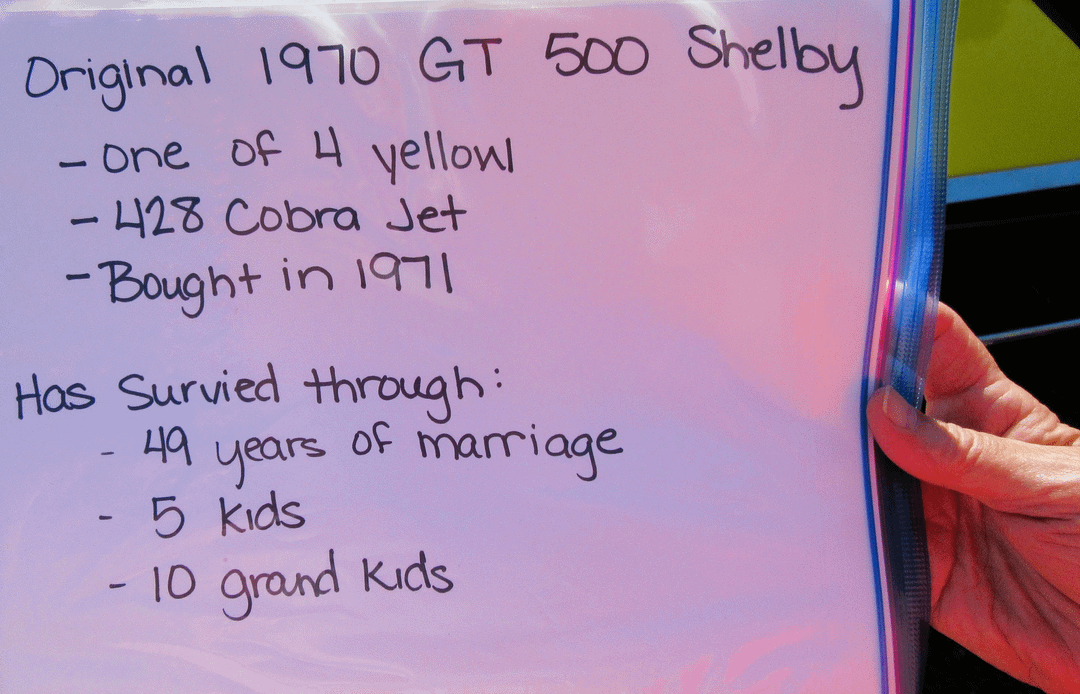 Original 1970 GT 500 Shelby
- one of 4 yellow
- 428 Cobra Jet
- Bought in 1971
Has Survied through:
- 49 years of marriage
- 5 kids
- 10 grand kids